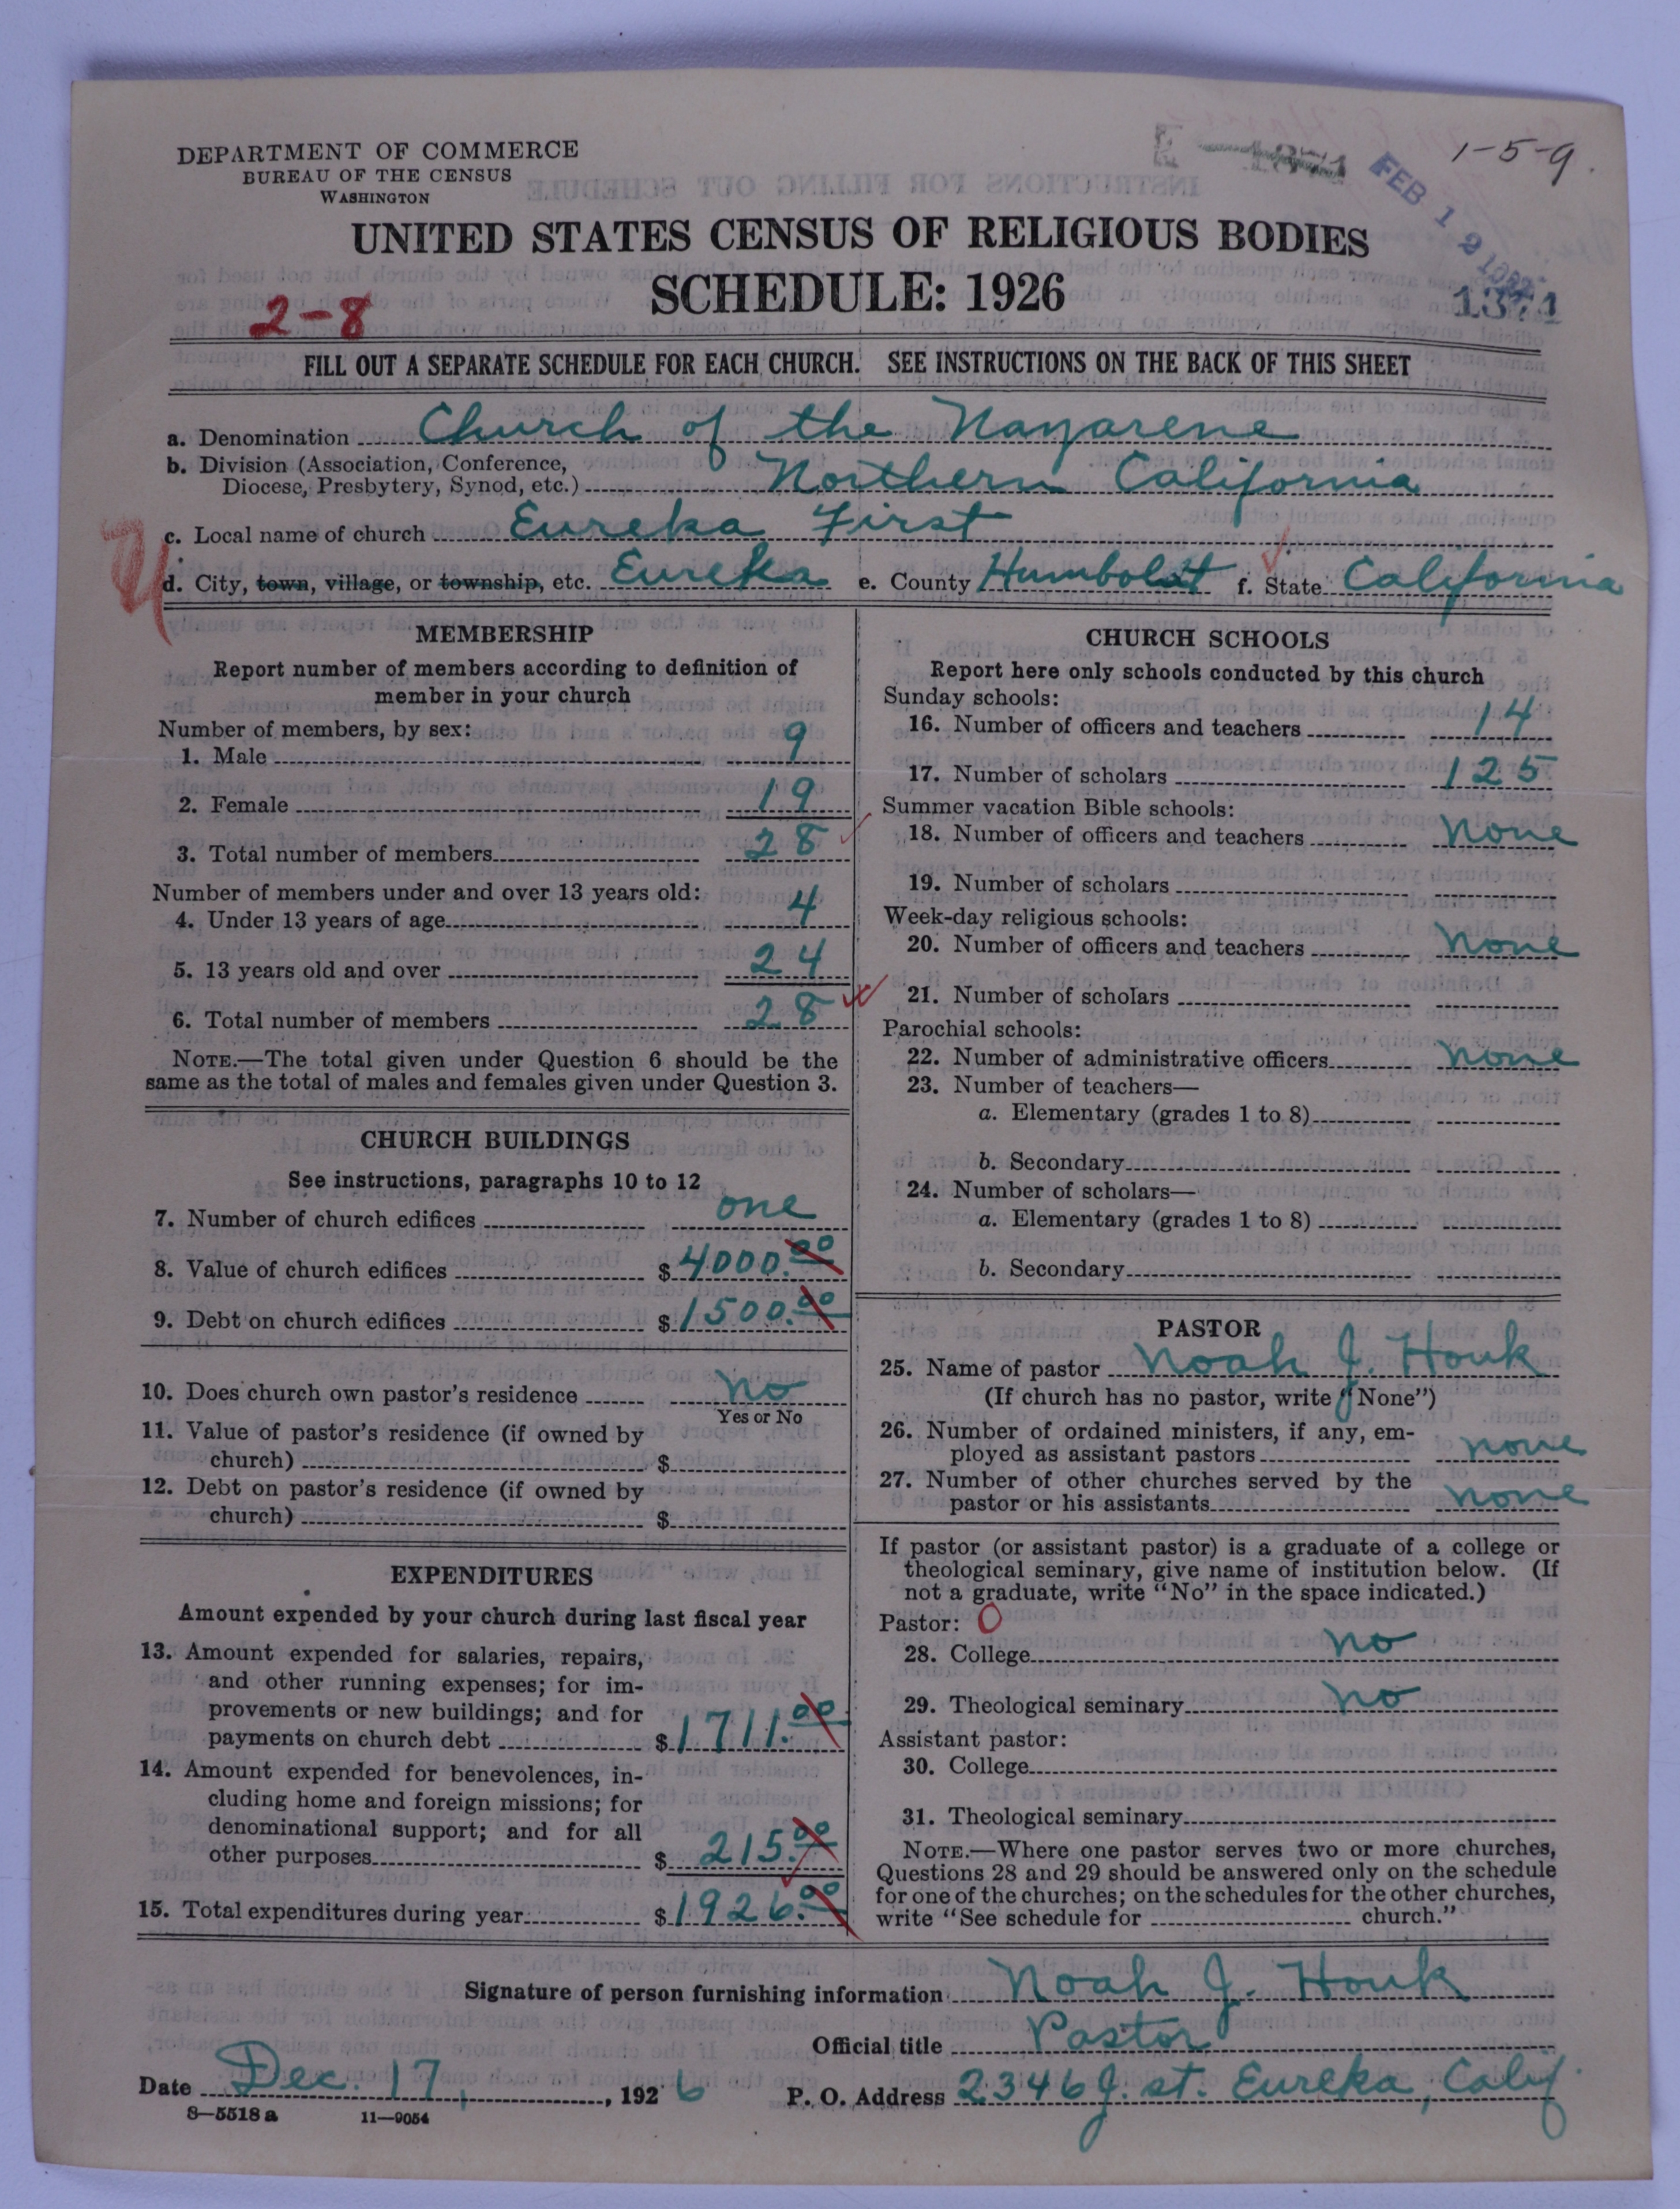 DEPARTMENT OF COMMERCE
BUREAU OF THE CENSUS
WASHINGTON
1-5-9.
FEB 1 9
UNITED STATES CENSUS OF RELIGIOUS BODIES
SCHEDULE: 1926
2-8
1371
FILL OUT A SEPARATE SCHEDULE FOR EACH CHURCH. SEE INSTRUCTIONS ON THE BACK OF THIS SHEET
a. Denomination Church of the Nazarene
b. Division (Association, Conference,
Diocese, Presbytery, Synod, etc.) Northern California
c. Local name of church Eureka First
d. City, town, village, or township, etc. Eureka e. County Humboldt f. State California
MEMBERSHIP
Report number of members according to definition of
member in your church
Number of members, by sex:
1. Male 9
2. Female 19
3. Total number of members 28
Number of members under and over 13 years old:
4. Under 13 years of age 4
5. 13 years old and over 24
6. Total number of members 28
NOTE.—The total given under Question 6 should be the
same as the total of males and females given under Question 3.
CHURCH BUILDINGS
See instructions, paragraphs 10 to 12
7. Number of church edifices one
8. Value of church edifices $ 4000.00
9. Debt on church edifices $ 1500.00
10. Does church own pastor's residence No
Yes or No
11. Value of pastor's residence (if owned by
church) $
12. Debt on pastor's residence (if owned by
church) $
EXPENDITURES
Amount expended by your church during last fiscal year
13. Amount expended for salaries, repairs,
and other running expenses; for im-
provements or new buildings; and for
payments on church debt $ 1711.00
14. Amount expended for benevolences, in-
cluding home and foreign missions; for
denominational support; and for all
other purposes $ 215.00
15. Total expenditures during year $ 1926.00
CHURCH SCHOOLS
Report here only schools conducted by this church
Sunday schools:
16. Number of officers and teachers 14
17. Number of scholars 125
Summer vacation Bible schools:
18. Number of officers and teachers None
19. Number of scholars
Week-day religious schools:
20. Number of officers and teachers None
21. Number of scholars
Parochial schools:
22. Number of administrative officers None
23. Number of teachers—
a. Elementary (grades 1 to 8)
b. Secondary
24. Number of scholars—
a. Elementary (grades 1 to 8)
b. Secondary
PASTOR
25. Name of pastor Noah J. Houk
(If church has no pastor, write "None")
26. Number of ordained ministers, if any, em-
ployed as assistant pastors none
27. Number of other churches served by the
pastor or his assistants none
If pastor (or assistant pastor) is a graduate of a college or
theological seminary, give name of institution below. (If
not a graduate, write "No" in the space indicated.)
Pastor: O
28. College no
29. Theological seminary no
Assistant pastor:
30. College
31. Theological seminary
NOTE.—Where one pastor serves two or more churches,
Questions 28 and 29 should be answered only on the schedule
for one of the churches; on the schedules for the other churches,
write "See schedule for church."
Signature of person furnishing information Noah J. Houk
Official title Pastor
Date Dec. 17, , 1926 P. O. Address 2346 J. st. Eureka, Calif.
8—5518 a 11—9054